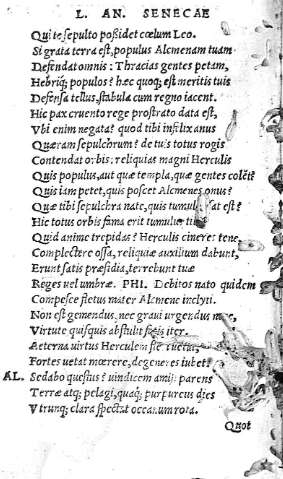 L. AN. SENECAE
Qui te sepulto poßidet cœlum Leo.
Si graia terra est, populus Alcmenam tuam
Defendat omnis: Thracias gentes petam,
Hebriq; populos? hæc quoq; est meritis tuis
Defensa tellus, stabula cum regno iacent.
Hic pax cruento rege prostrato data est,
Vbi enim negata? quod tibi infœlix anus
Quæram sepulchrum? de tuis totus rogis
Contendat orbis: reliquias magni Herculis
Quis populus, aut quæ templa, quæ gentes colẽt?
Quis iam petet, quis poscet Alcmenes onus?
Quæ tibi sepulchra nate, quis tumulus sat est?
Hic totus orbis fama erit tumulus tibi
Quid anime trepidas? Herculis cineres tene,
Complectere ossa, reliquiæ auxilium dabunt,
Erunt satis præsidia, terrebunt tuæ
Reges uel umbræ. PHI. Debitos nato quidem
Compesce fletus mater Alcmene inclyti.
Non est gemendus, nec graui urgendus
Virtute quisquis abstulit iter.
Aeterna uirtus Herculem
Fortes uetat mœrere, degeneres iubet.
AL. Sedabo questus? uindicem amisi parens
Terræ atq; pelagi, quaq; purpureus dies
Vtrunq; clara spectat oceanum rota.
Quot